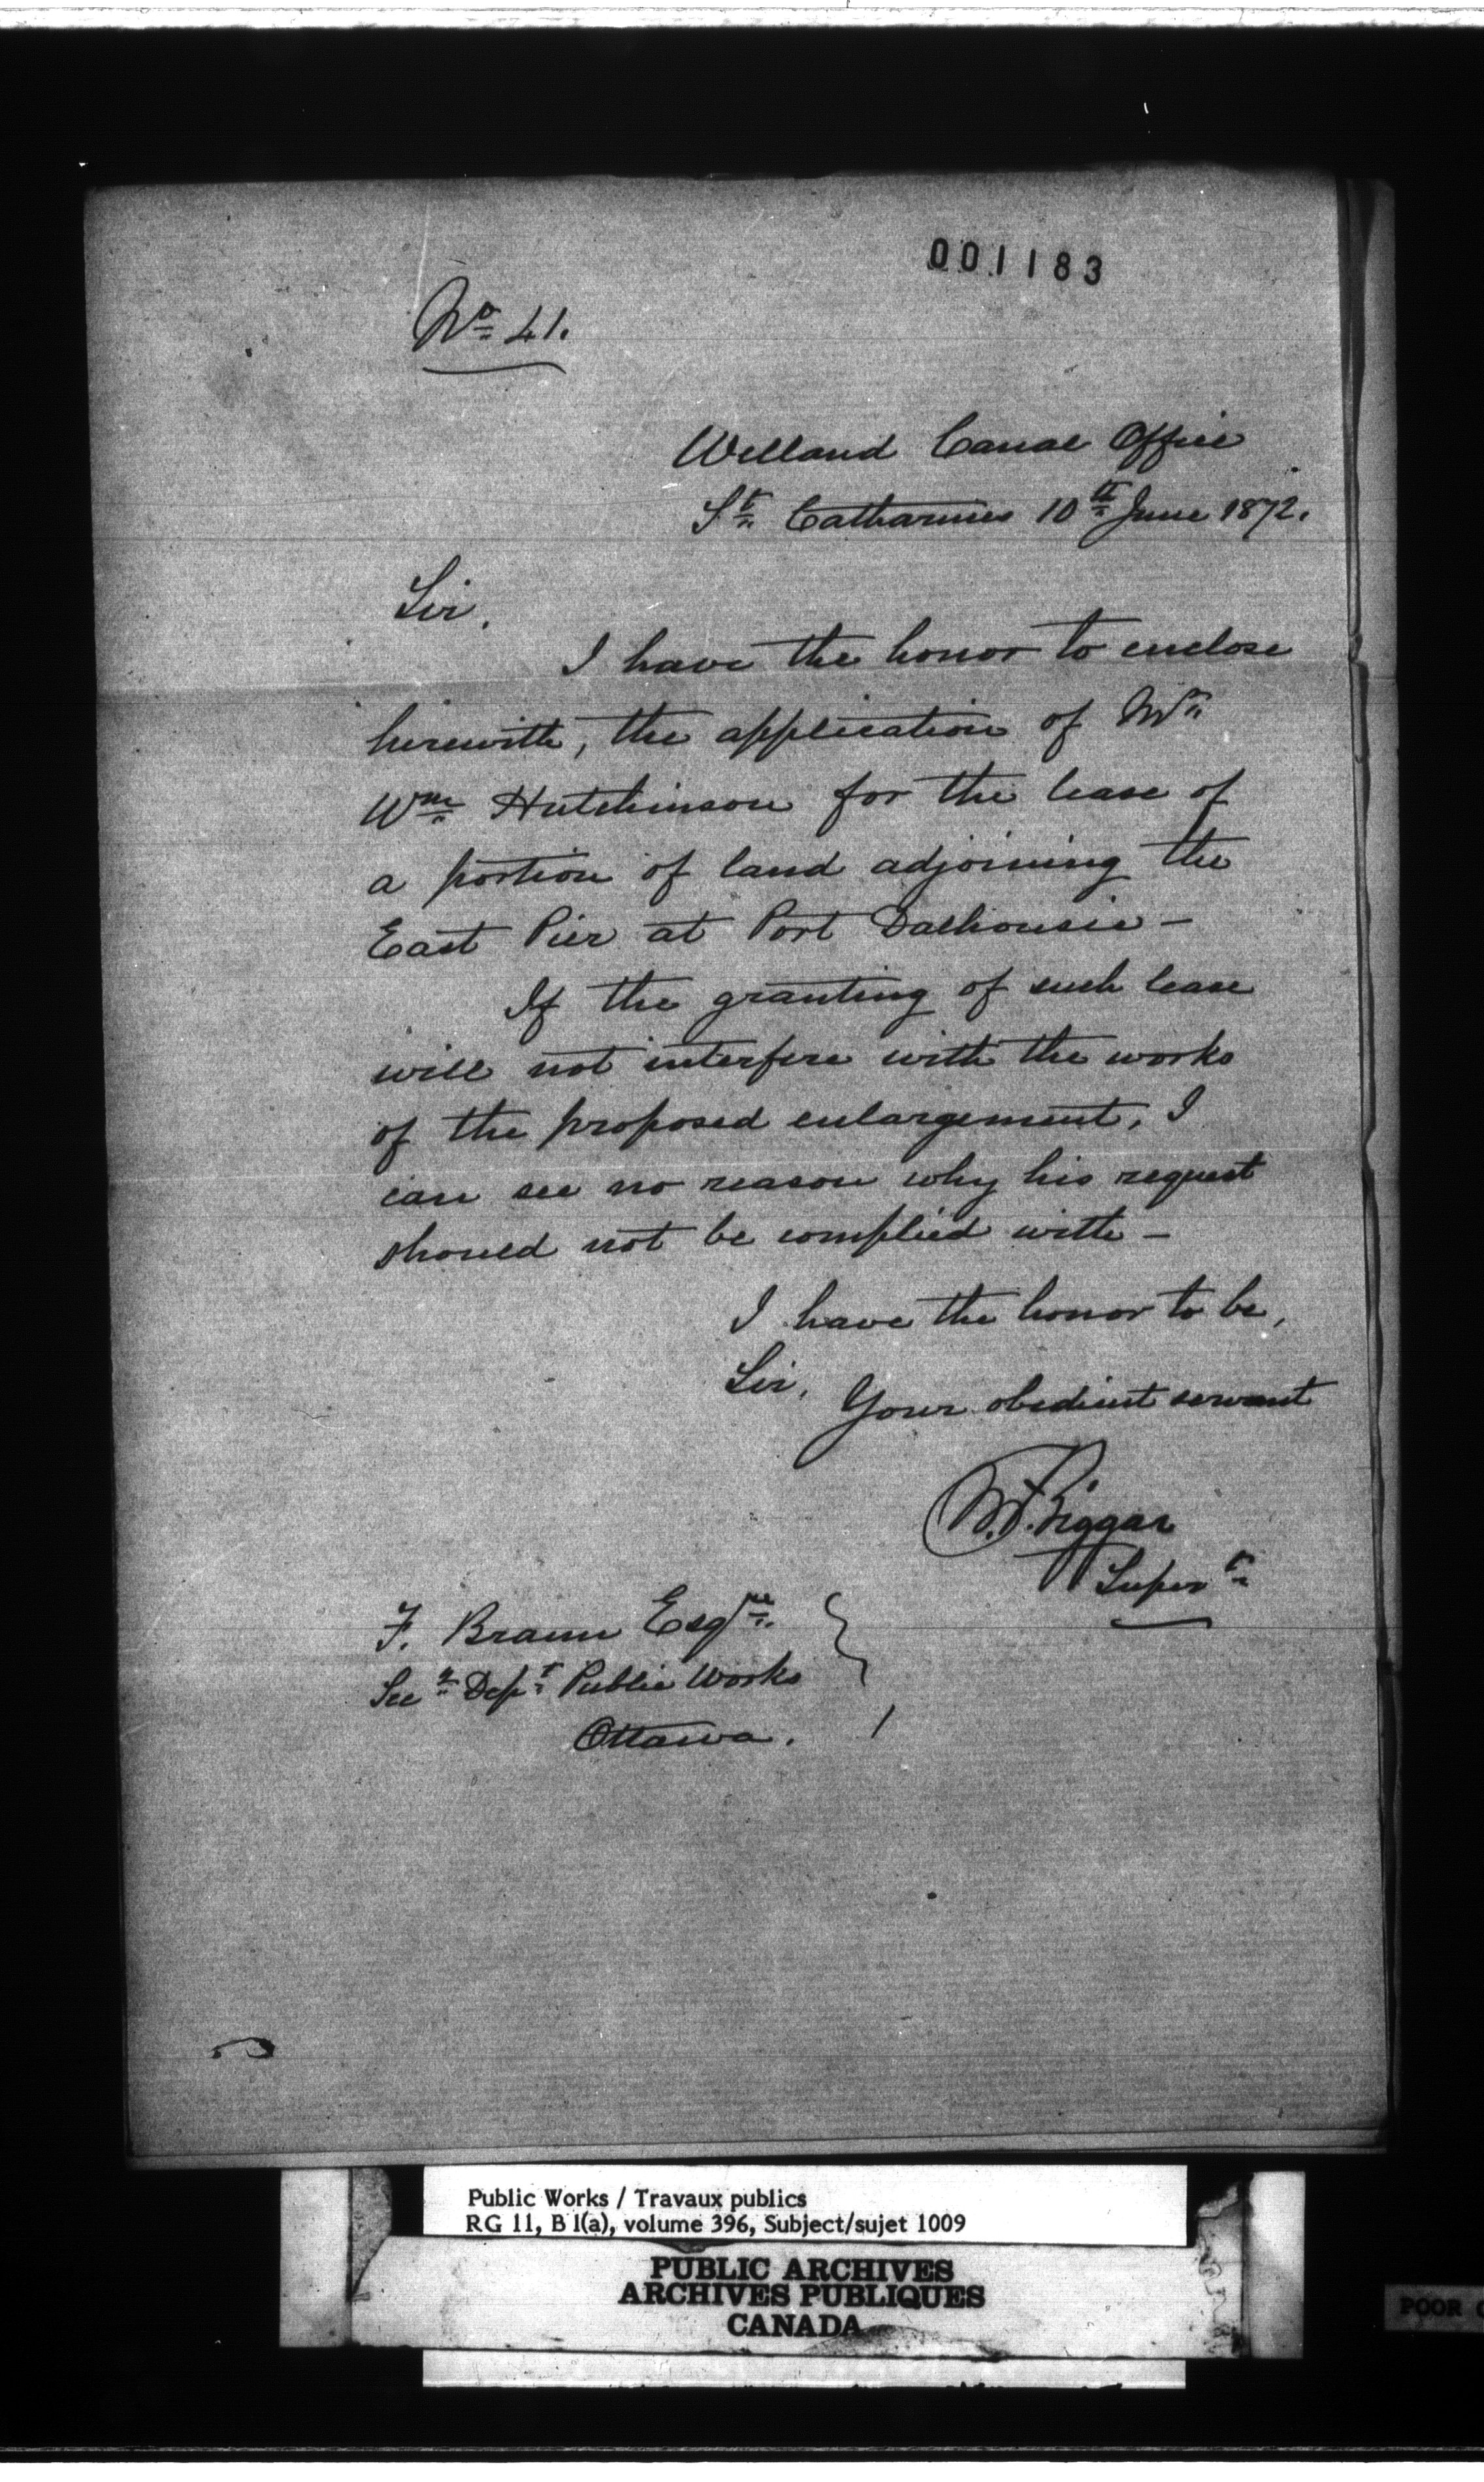 001183
No 41.
Welland Canal Office
St Catharines 10th June 1872.
Sir,
I have the honor to enclose
herewith, the application of Mr
Wm Hutchinson for the lease of
a portion of land adjoining the
East Pier at Port Dalhousie –
If the granting of such lease
will not interfere with the works
of the proposed enlargement, I
can see no reason why his request
should not be complied with –
I have the honor to be,
Sir,
Your obedient servant
Biggar
Supert
F. Braun Esqre
Secy Dept Public Works
Ottawa.
Public Works / Travaux publics
RG 11, B 1(a), volume 396, Subject/sujet 1009
PUBLIC ARCHIVES
ARCHIVES PUBLIQUES
CANADA
POOR